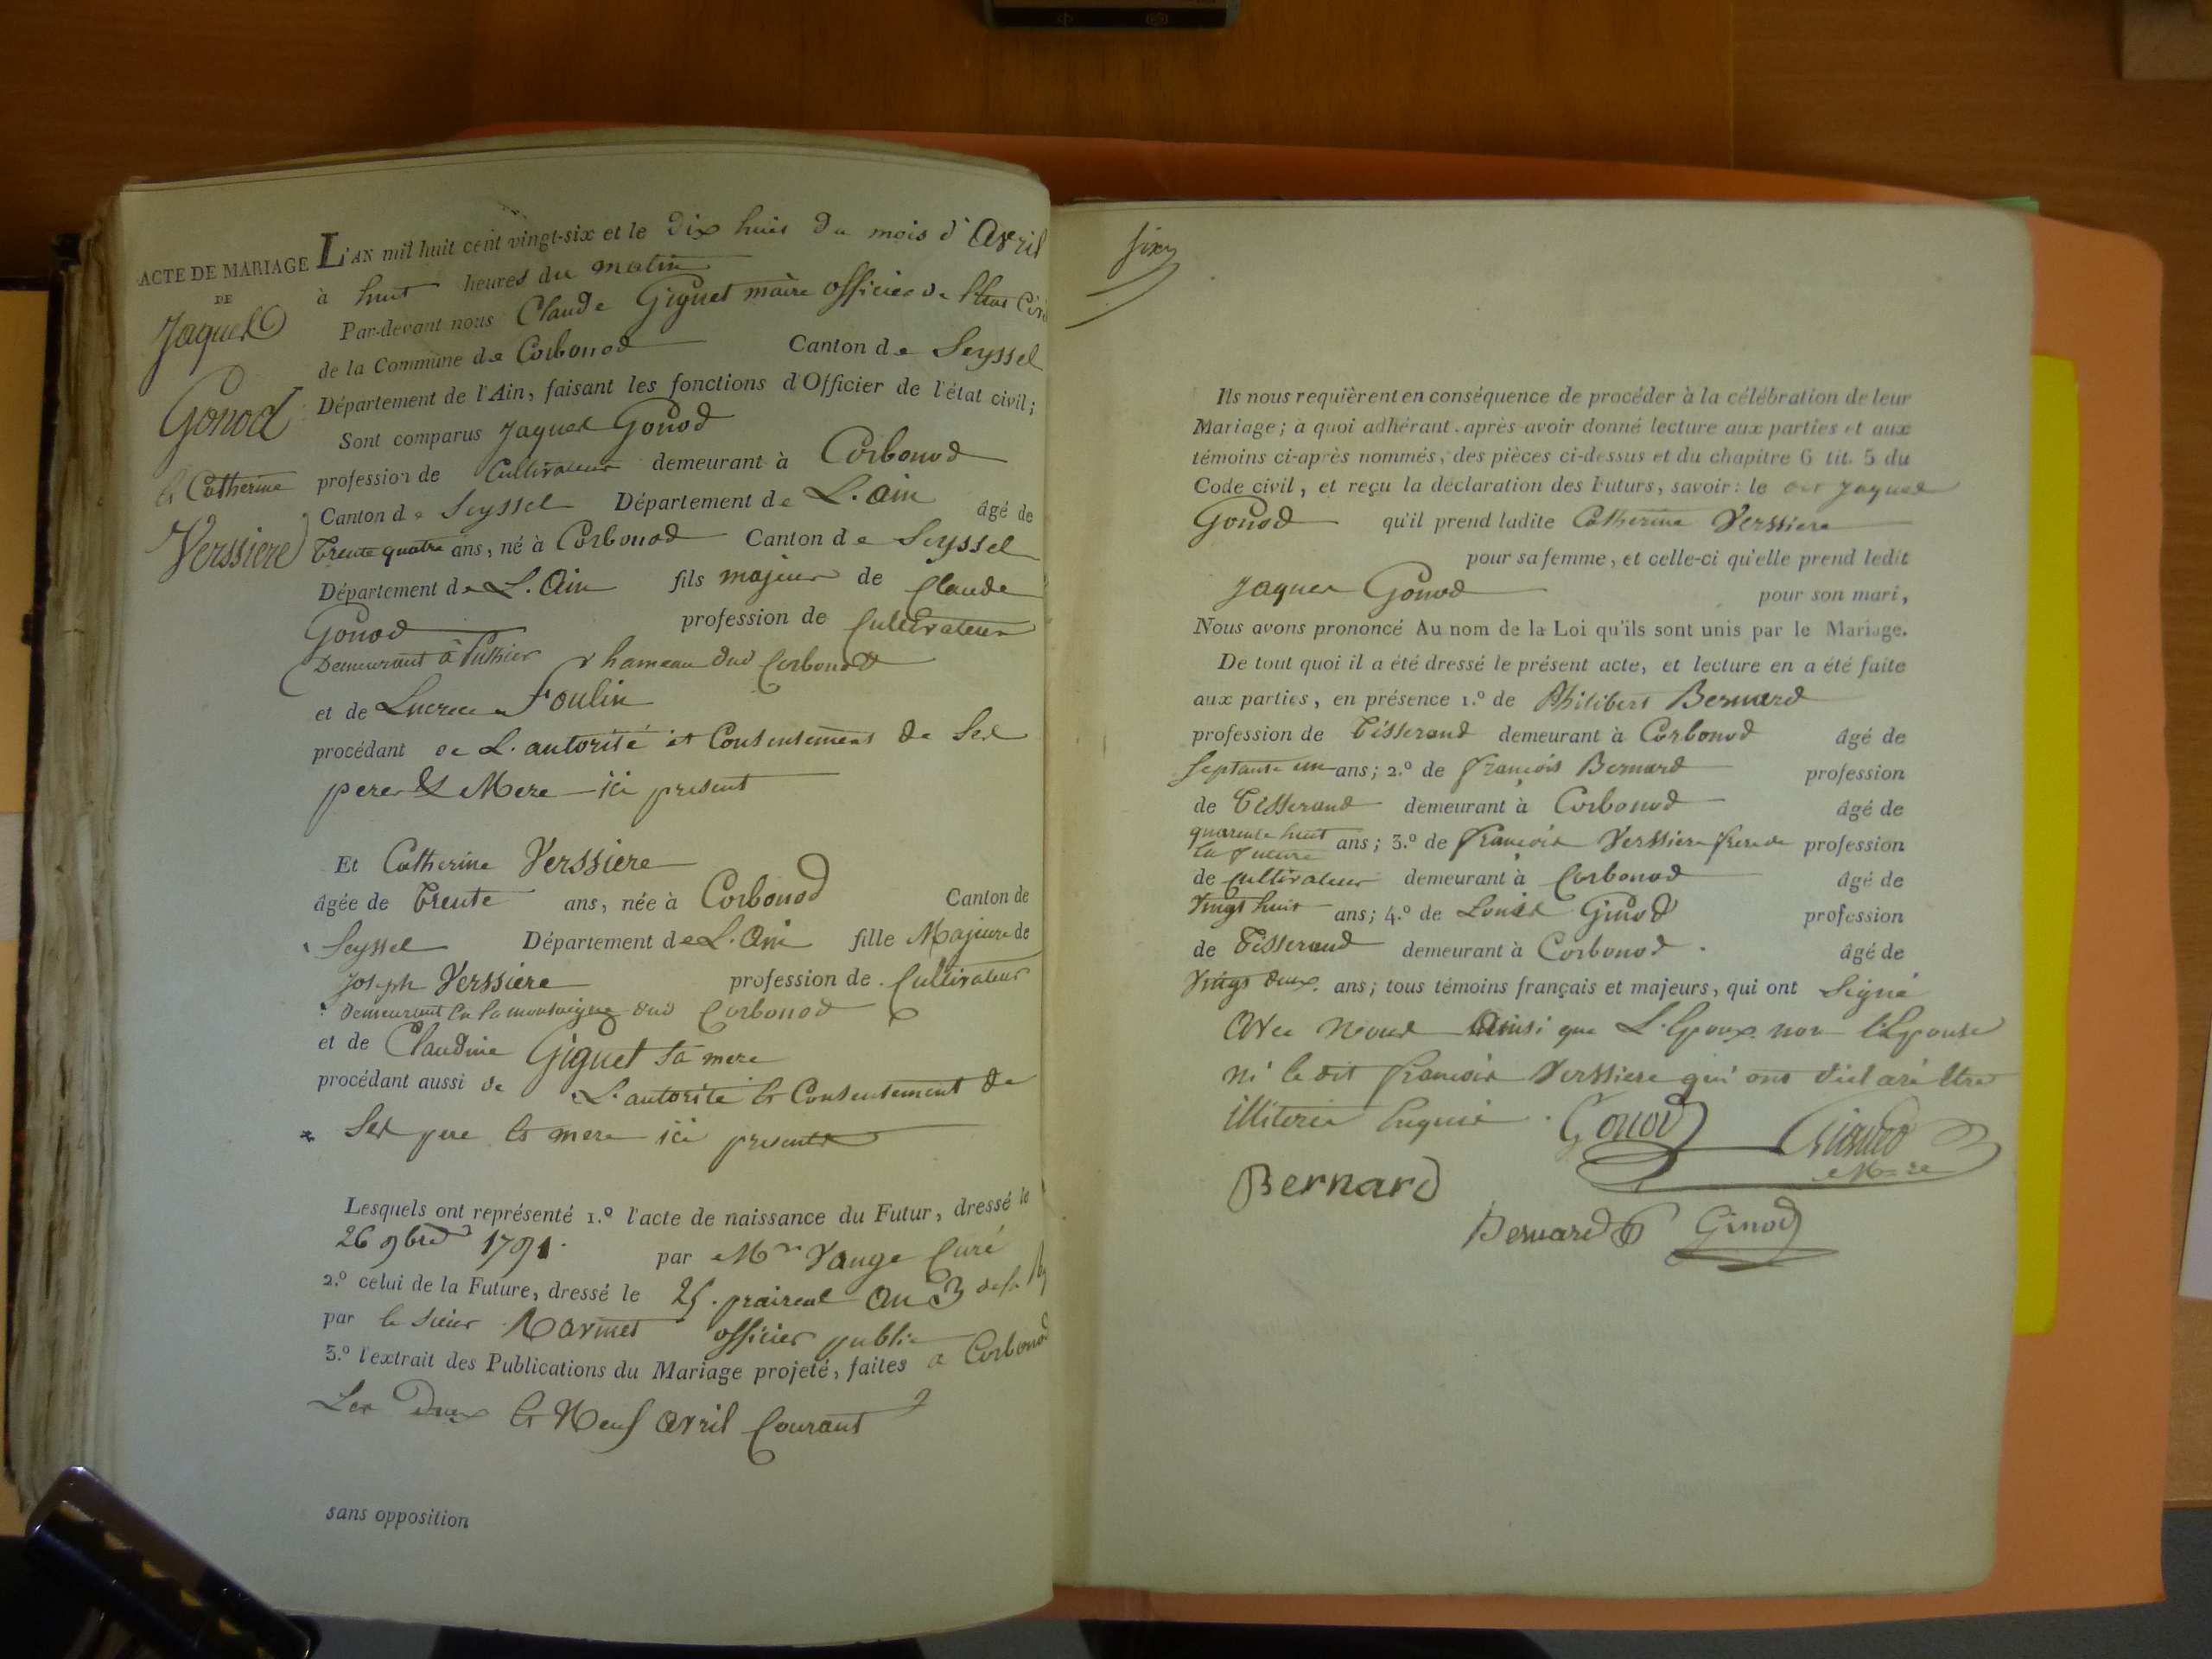 ACTE DE MARIAGE
DE
Jaques
Gonod
et Catherine
Verssiere
L'AN mil huit cent vingt-six et le dix huit du mois d'Avril
à huit heures du matin
Par-devant nous Claude Giguet maire officier de l'état Civil
de la Commune de Corbonod Canton de Seyssel
Département de l'Ain, faisant les fonctions d'Officier de l'état civil;
Sont comparus Jaques Gonod
profession de Cultivateur demeurant à Corbonod
Canton de Seyssel Département de L'Ain âgé de
trente quatre ans, né à Corbonod Canton de Seyssel
Département de L'Ain fils majeur de Claude
Gonod profession de Cultivateur
Demeurant à hameau dud Corbonod
et de Lucrece Foulin
procédant de L'autorité et Consentement de Ses
pere & Mere ici present
Et Catherine Verssiere
âgée de trente ans, née à Corbonod Canton de
Seyssel Département de L'Ain fille Majeure de
Joseph Verssiere profession de Cultivateur
demeurant en la montaigne dud Corbonod
et de Claudine Giguet sa mere
procédant aussi de L'autorité et Consentement de
Ses pere et mere ici presents
Lesquels ont représenté 1.º l'acte de naissance du Futur, dressé le
26 9bre 1791 par Mr Vange Curé
2.º celui de la Future, dressé le 25 praireal an 3
par le sieur Marmet officier public
3.º l'extrait des Publications du Mariage projeté, faites a Corbonod
Les Deux et Neuf avril Courant
sans opposition
Ils nous requièrent en conséquence de procéder à la célébration de leur
Mariage; à quoi adhérant, après avoir donné lecture aux parties et aux
témoins ci-après nommés, des pièces ci-dessus et du chapitre 6 tit. 5 du
Code civil, et reçu la déclaration des Futurs, savoir: le dit Jaques
Gonod qu'il prend ladite Catherine Verssiere
pour sa femme, et celle-ci qu'elle prend ledit
Jaques Gonod pour son mari,
Nous avons prononcé Au nom de la Loi qu'ils sont unis par le Mariage.
De tout quoi il a été dressé le présent acte, et lecture en a été faite
aux parties, en présence 1.º de Philibert Bernard
profession de tisserand demeurant à Corbonod âgé de
septante un ans; 2.º de françois Bernard profession
de tisserand demeurant à Corbonod âgé de
quarente huit ans; 3.º de françois Verssiere frere de profession
la future
de cultivateur demeurant à Corbonod âgé de
vingt huit ans; 4.º de Louis Ginod profession
de tisserand demeurant à Corbonod âgé de
vingt deux ans; tous témoins français et majeurs, qui ont signé
avec nous ainsi que L'Epoux non l'Epouse
ni le dit françois Verssiere qui ont déclaré être
illiterés Enquis. Gonod Giguet
Maire
Bernard
Bernard Ginod